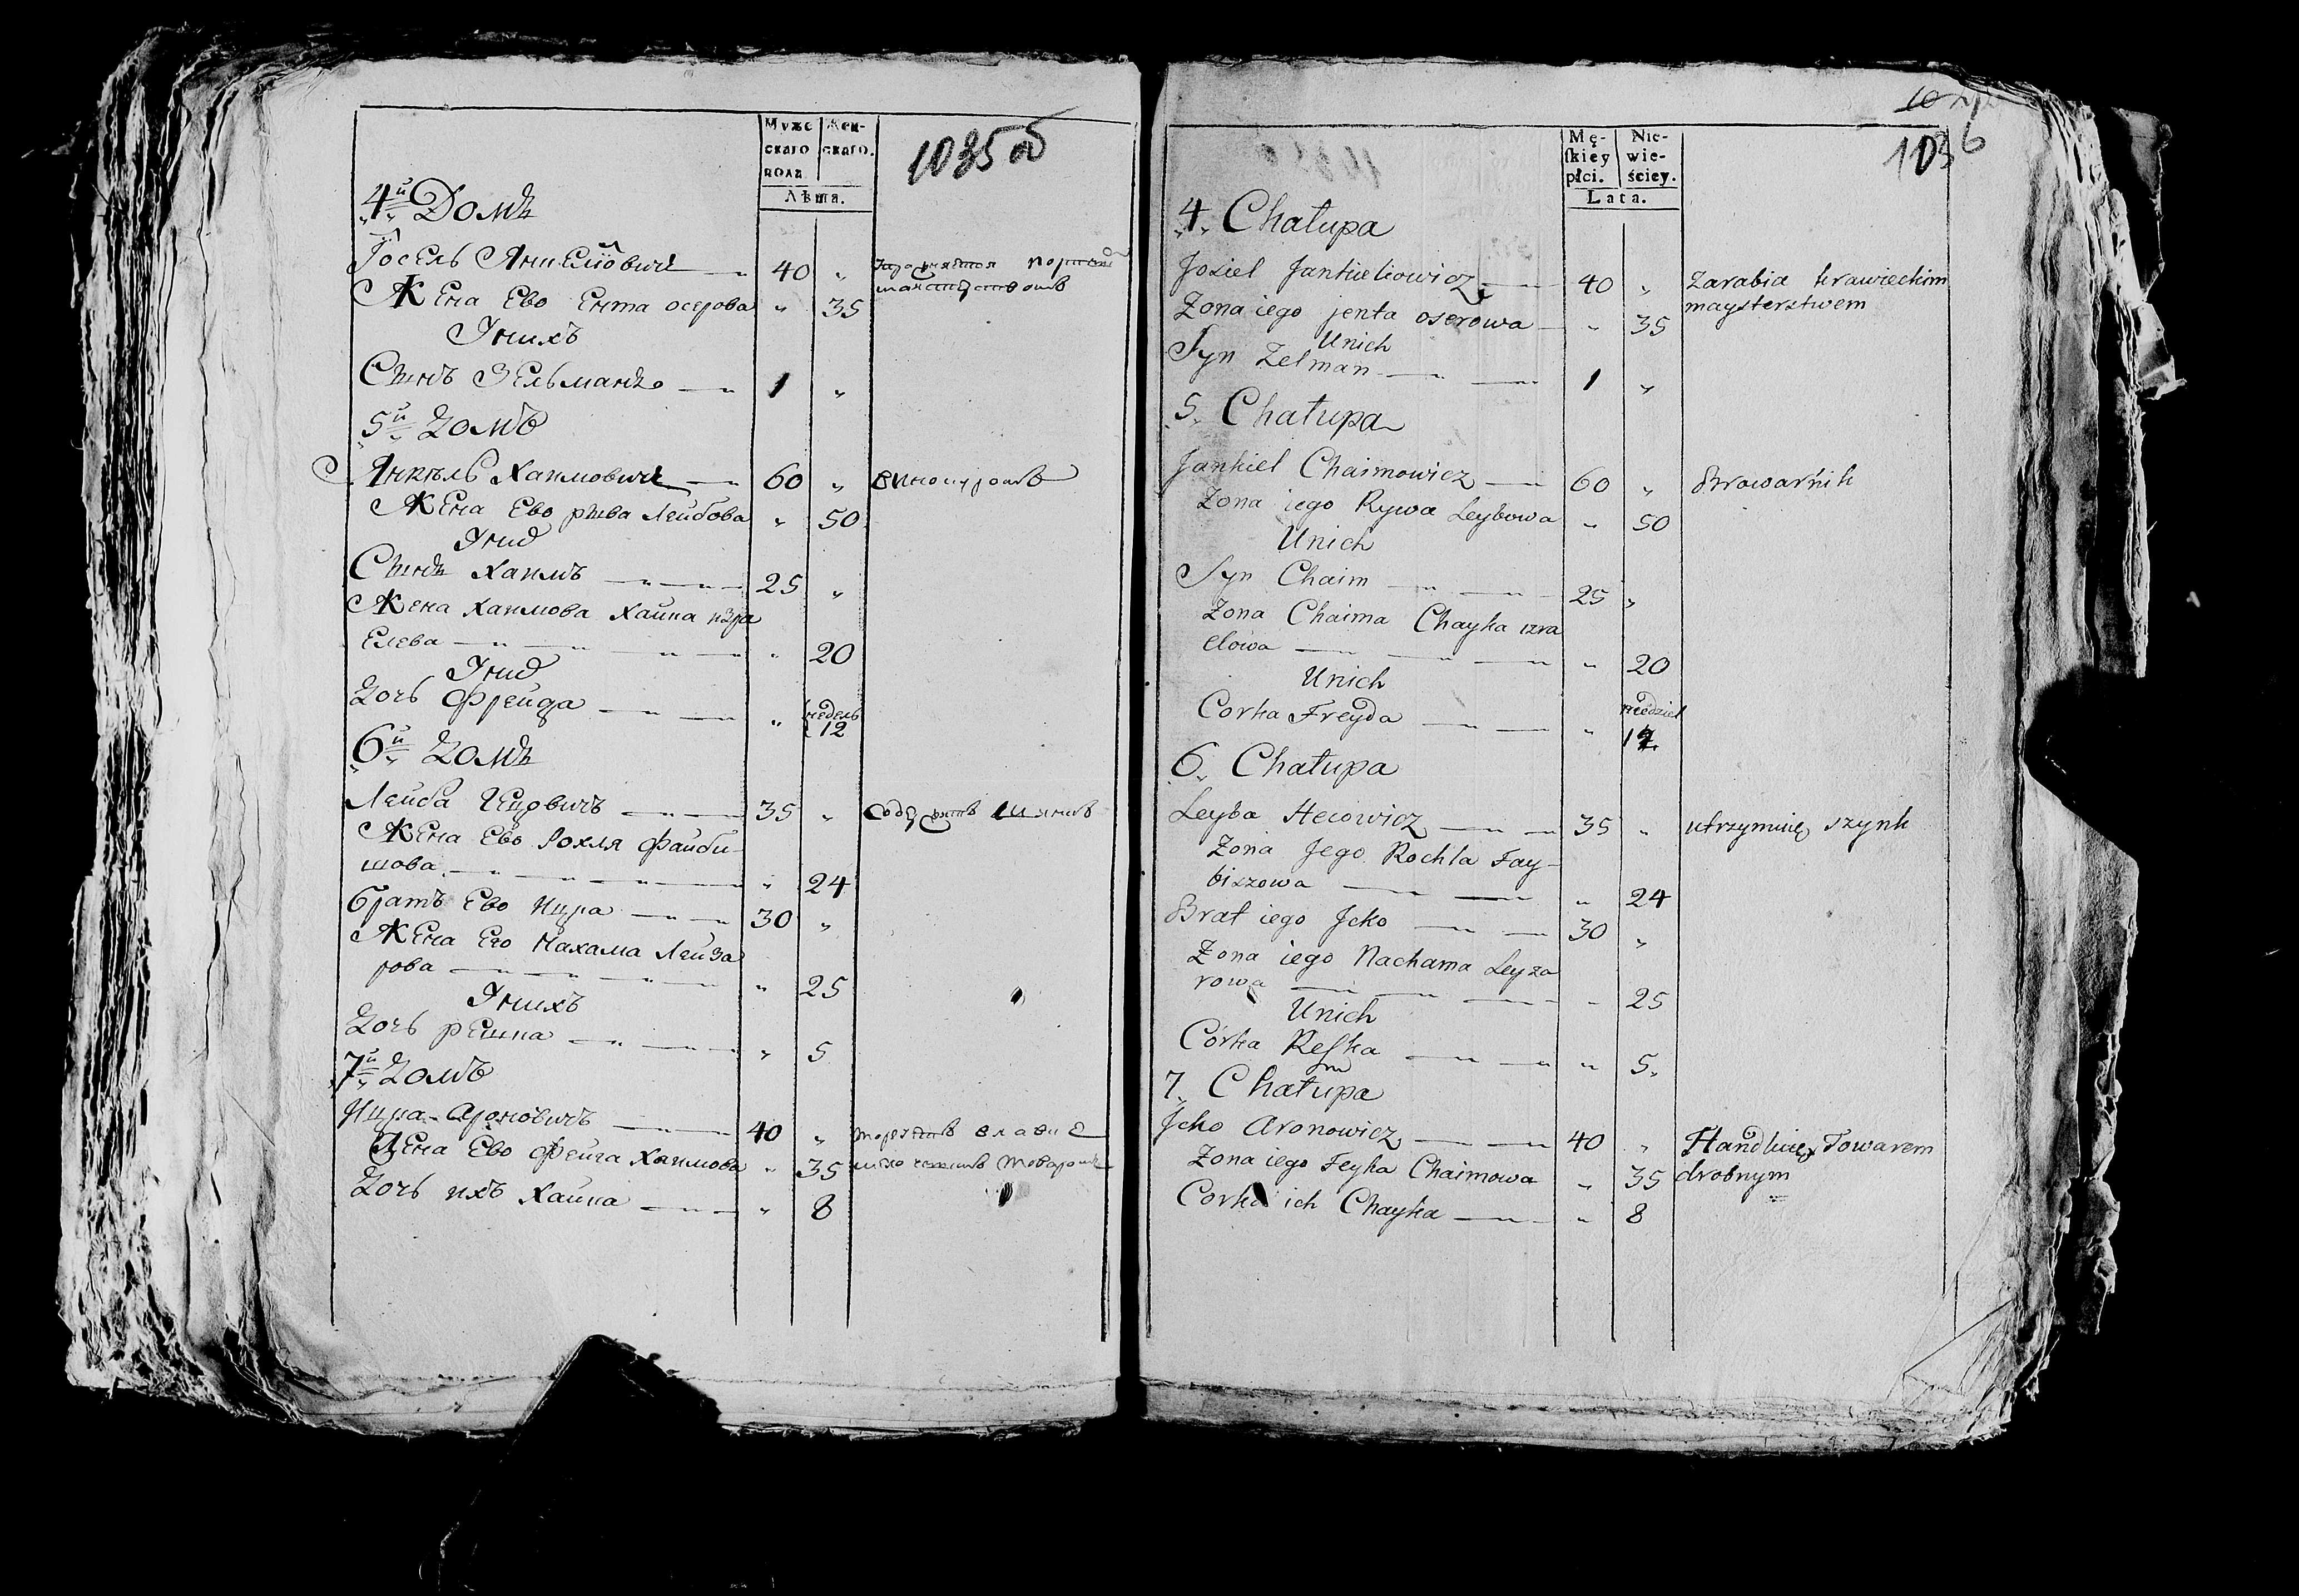 Муже Жен-
скаго скаго.
пола
Лѣта.
1035 об
4й Домъ
Іосель Янкелiовичъ 40 „ портня
маистерствомъ
Жена Ево Ента осерова „ 35
У нихъ
Сынъ Зельманъ 1 „
5й Домъ
Янкель Хаимовичъ 60 „ винокуромъ
Жена Ево рыва Лейбова „ 50
У них
Сынъ Хаимъ 25 „
Жена Хаимова Хайка изра
Елева „ 20
У них
Дочь Фрейда „ недель
12
6й Домъ
Лейба Гецовичъ 35 „ Содержитъ Шинкъ
Жена Ево Рохля Файби-
шова „ 24
братъ Ево Ицка 30 „
Жена Его Нахама Лейза
рова „ 25
У нихъ
Дочь решка „ 5
7й Домъ
Ицка Ароновичъ 40 „ торгуетъ
Жена Ево Фейга Хаимова „ 35 товаромъ
Дочь ихъ Хайка „ 8
1036
Mę- Nie-
skiey wie-
płci. ściey.
Lata.
4. Chałupa
Josiel Jankieliowicz 40 „ Zarabia krawieckim
maysterstwem
Zona iego jenta oserowa „ 35
Unich
Syn Zelman 1 „
5. Chałupa
Jankiel Chaimowicz 60 „ Browarnik
Zona iego Rywa Leybowa „ 50
Unich
Syn Chaim 25 „
Zona Chaima Chayka izra
elowa „ 20
Unich
Corka Freyda „ niedziel
12
6. Chałupa
Leyba Hecowicz 35 „ utrzymuię szynk
Zona Jego Rochla Fay-
biszowa „ 24
Brat iego Jcko 30 „
Zona iego Nachama Leyza
rowa „ 25
Unich
Córka Reszka „ 5
7. Chałupa
Jcko Aronowicz 40 „ Handluię Towarem
Zona iego Feyka Chaimowa „ 35 drobnym
Corka ich Chayka „ 8